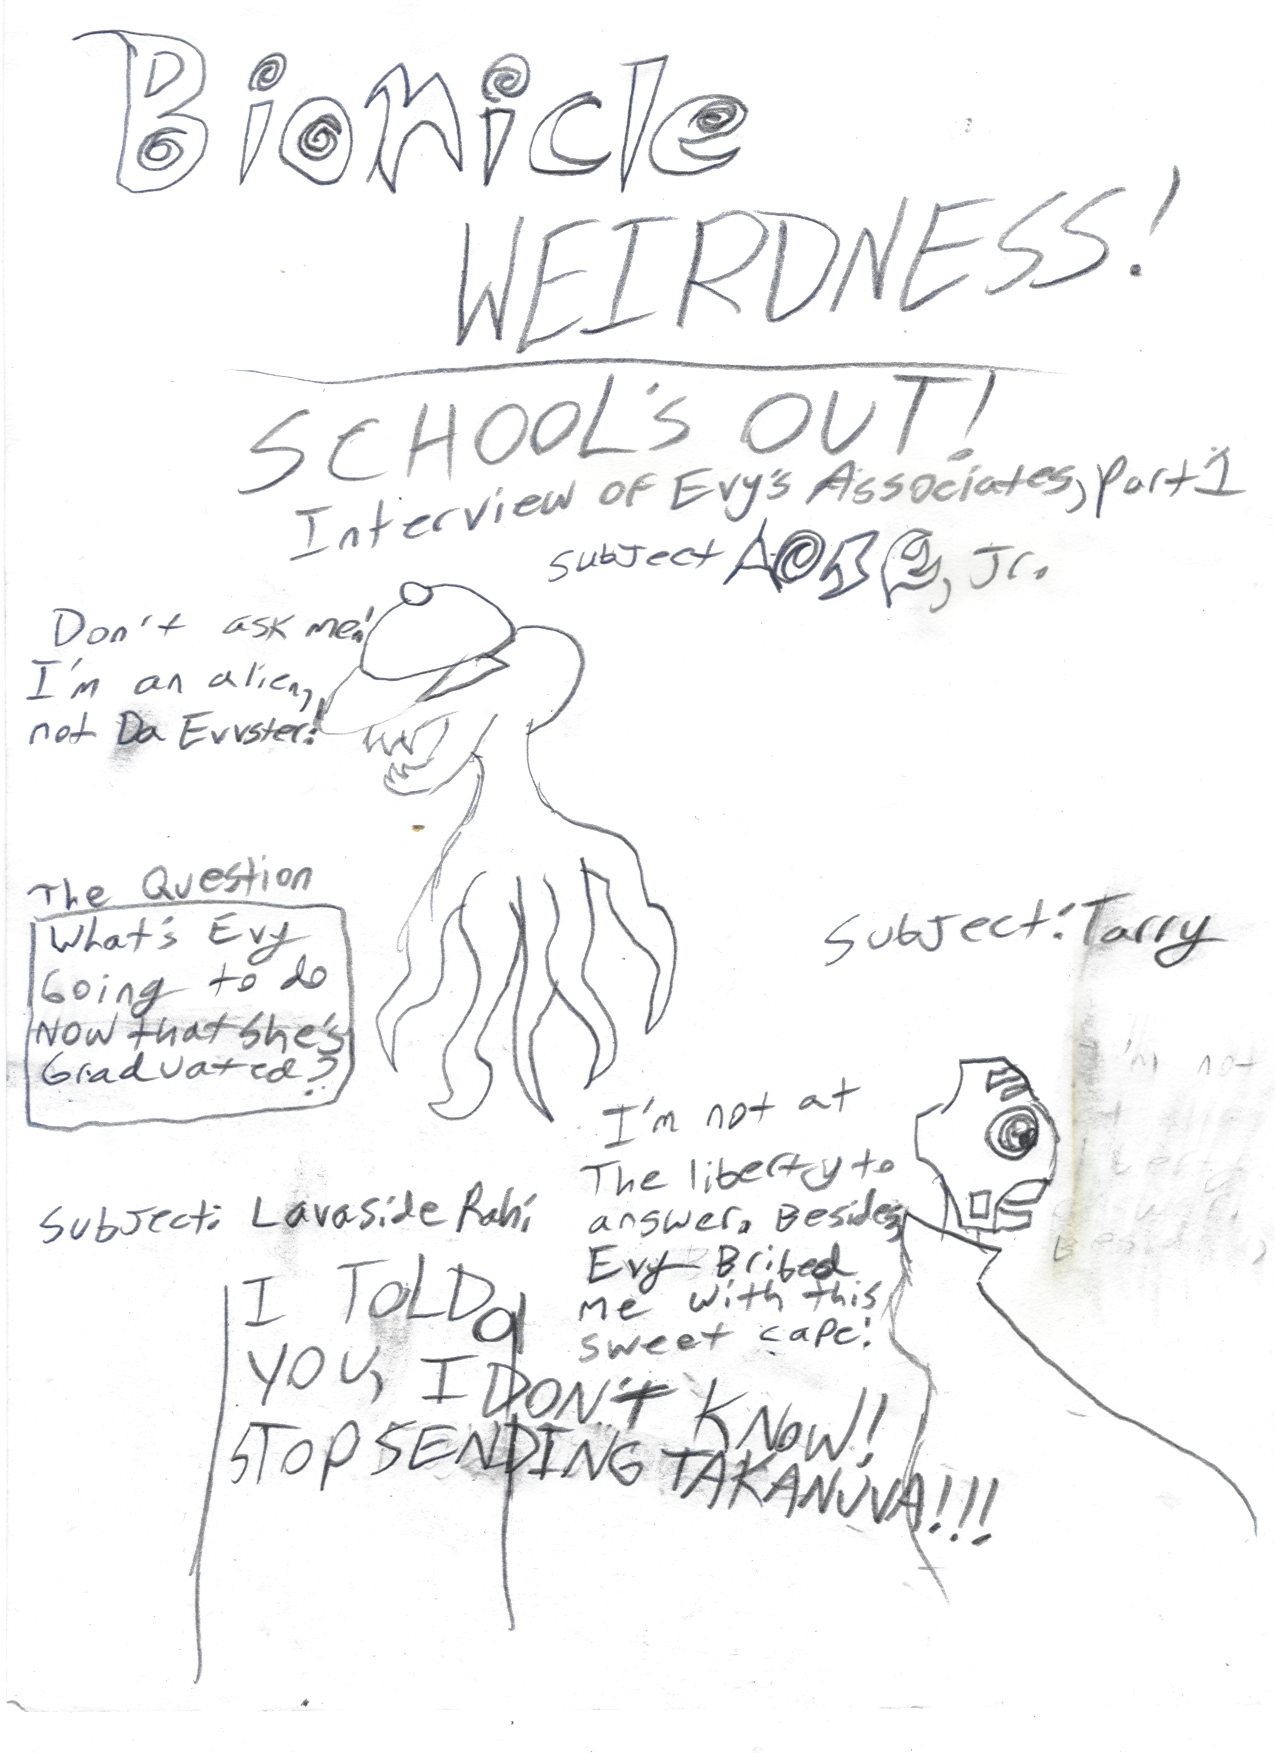 Bionicle
WEIRDNESS!
SCHOOL'S OUT!
Interview of Evy's Associates, part 1
Subject , Jr.
Don't ask me!
I'm an alien,
not Da Evvster!
The Question
What's Evy
Going to do
Now that She's
Graduated?
Subject: Tarry
I'm not at
The liberty to
answer. Besides,
Evy Bribed
me with this
sweet cape!
Subject: Lavaside Rahi
I TOLD
YOU, I DON'T KNOW!!
STOP SENDING TAKANUVA!!!